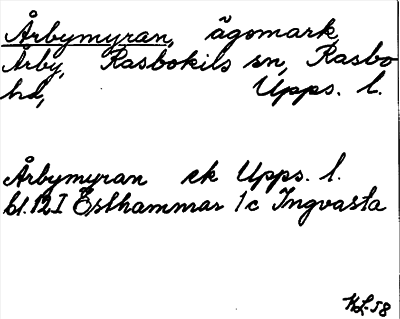 Årbymyran, ägomark
Årby, Rasbokils sn, Rasbo
hd, Upps. l.
Årbymyran ek Upps. l.
bl. 12 I Östhammar 1c Ingvasta
KL-58